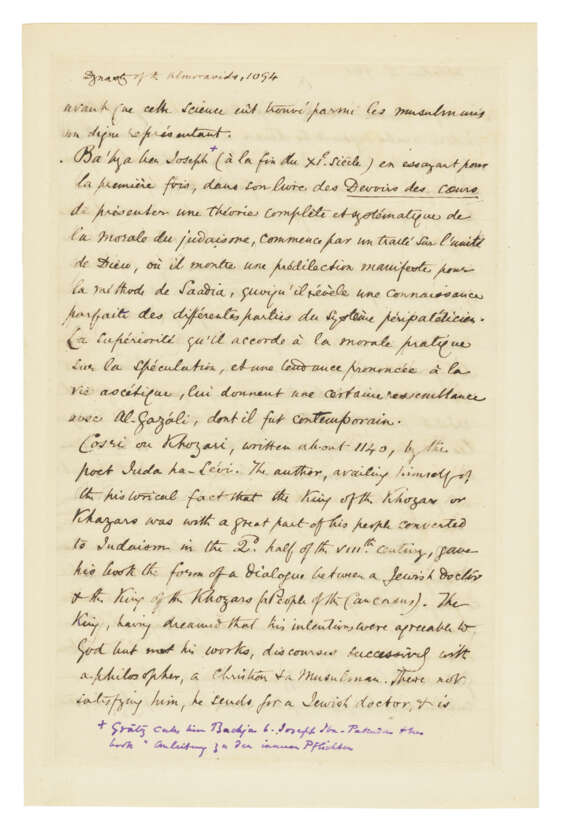 Dynasty of the Almoravids, 1094
avant que cette science eût trouvé parmi les musulmans
un digne représentant.
Ba'hya ben Joseph + (à la fin du XIe. siècle) en essayant pour
la première fois, dans son livre des Devoirs des cœurs
de présenter une théorie complète et systématique de
la morale du judaisme, commence par un traité sur l'unité
de Dieu, où il montre une prédilection manifeste pour
la méthode de Saadia, quoiqu'il révèle une connaissance
parfaite des différentes parties du système péripatéticien.
La supériorité qu'il accorde à la morale pratique
sur la spéculation, et une tendance prononcée à la
vie ascétique, lui donnent une certaine ressemblance
avec Al-Gazâli, dont il fut contemporain.
Cosri ou Khozari, written about 1140, by the
poet Juda ha-Lévi. The author, availing himself of
the historical fact that the King of the Khozars or
Khazars was with a great part of his people converted
to Judaism in the 2d. half of the VIIIth. century, gave
his book the form of a dialogue between a Jewish doctor
& the King of the Khozars (People of the Caucasus). The
King, having dreamed that his intentions were agreeable to
God but not his works, discourses successively with
a philosopher, a Christian & a Musulman. These not
satisfying him, he sends for a Jewish doctor, & is
+ Grätz calls him Bachja b. Joseph Ibn-Pakuda & his
book "Anleitung zu den inneren Pflichten